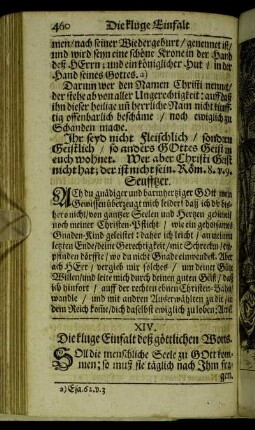 460 Die kluge Einfalt
men / nach seiner Wiedergeburt / genennet ist /
und wird seyn eine schöne Krone in der Hand
deß HErrn ; und ein königlicher Hut / in der
Hand seines Gottes. a)
Darum wer den Namen Christi nennet /
der stehe ab von aller Ungerechtigkeit : auff daß
ihn dieser heilige uñ herrliche Nam nicht künff-
tig offenbarlich beschäme / noch ewiglich zu
Schanden mache.
Ihr seyd nicht fleischlich / sondern
Geistlich / so anders GOttes Geist in
euch wohnet. Wer aber Christi Geist
nicht hat / der ist nicht sein. Röm. 8. v. 9.
Seufftzer.
ACh du gnädiger und barmhertziger GOtt mein
Gewissen überzeugt mich leider! daß ich dir biß-
hero nicht / von gantzer Seelen und Hertzen
noch meiner Christen-Pflicht / wie ein gehorsames
Gnaden-Kind geleistet : daher ich leicht / an meinem
letzten Ende / deine Gerechtigkeit / mit Schrecken /
pfinden dörffte / wo du nicht Gnade einwendest. Aber
ach HErr / vergib mir solches / um deiner Güte
Willen / und leite mich durch deinen guten Geist / daß
ich hinfort / auff der rechten ebnen Christen-Bahn
wandle / und mit andern Außerwählten zu dir / in
dein Reich kom̃e / dich daselbst ewiglich zu loben; Amẽ.
XIV.
Die kluge Einfalt deß göttlichen Worts.
SOll die menschliche Seele zu GOtt kom-
men ; so muß sie täglich nach Ihm fra-
gen.
a) Esa. 62. v. 3